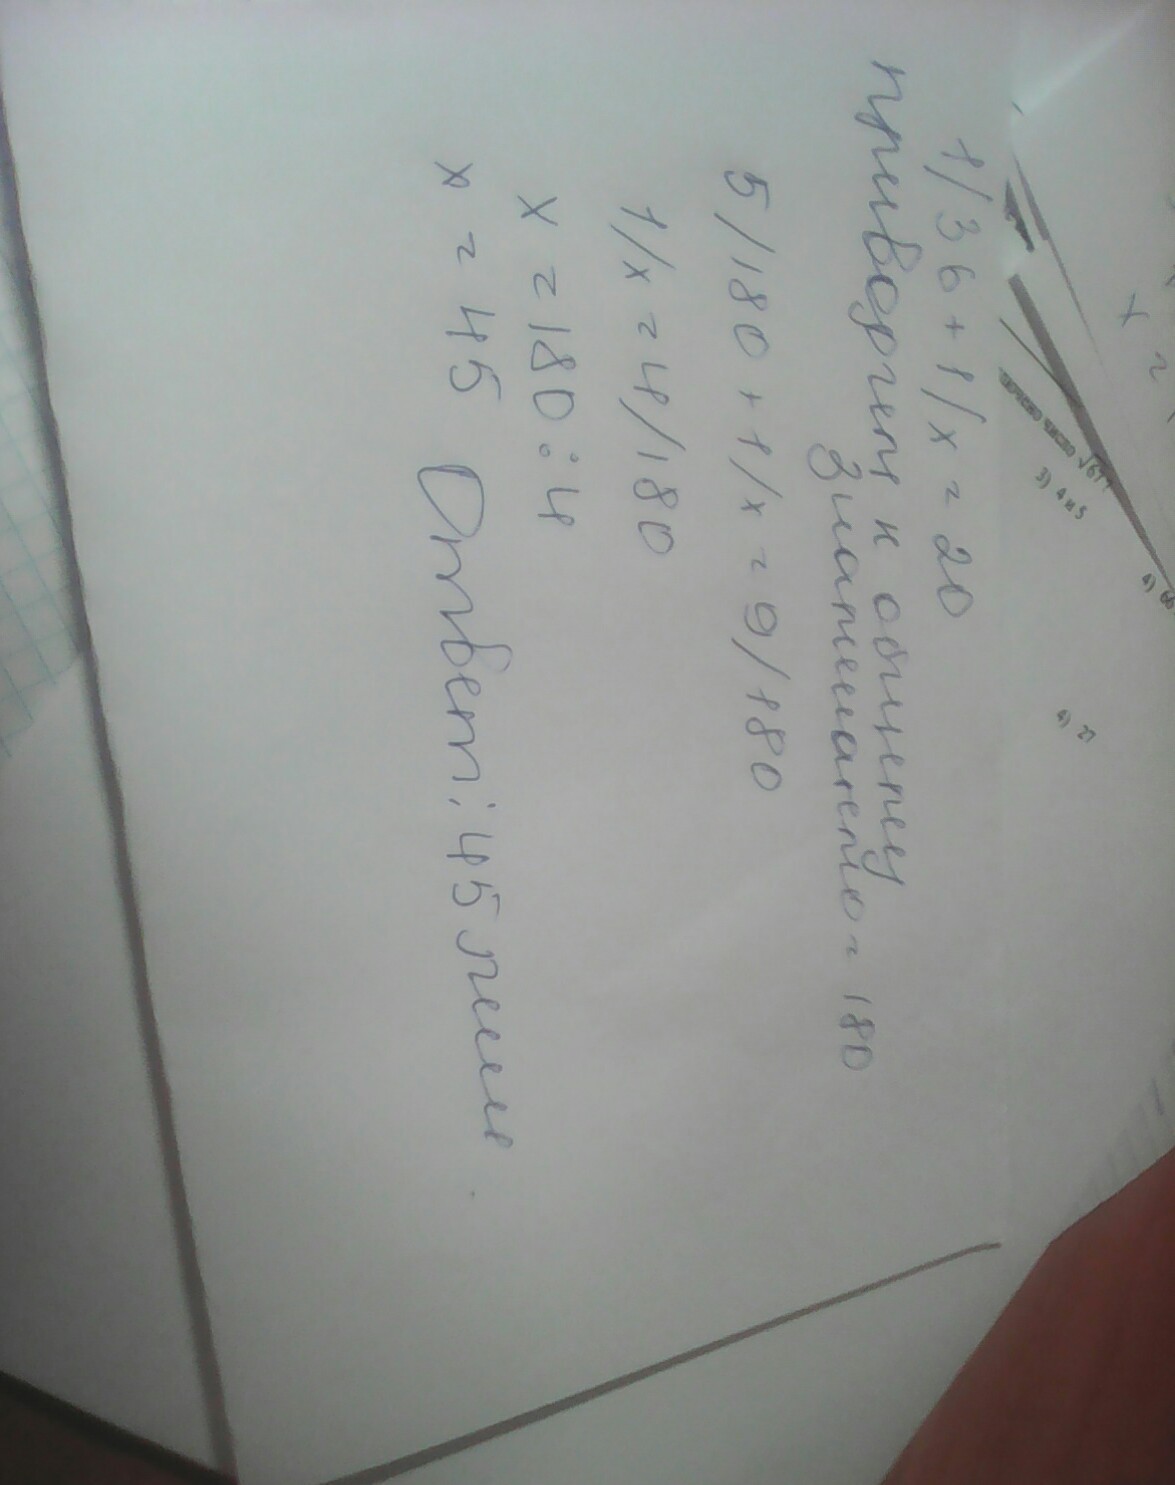 x =
√67
3) 4 и 5
4) 27
1/36 + 1/x = 20
приводим к общему
знаменателю = 180
5/180 + 1/x = 9/180
1/x = 4/180
x = 180 : 4
x = 45 Ответ: 45 мин.